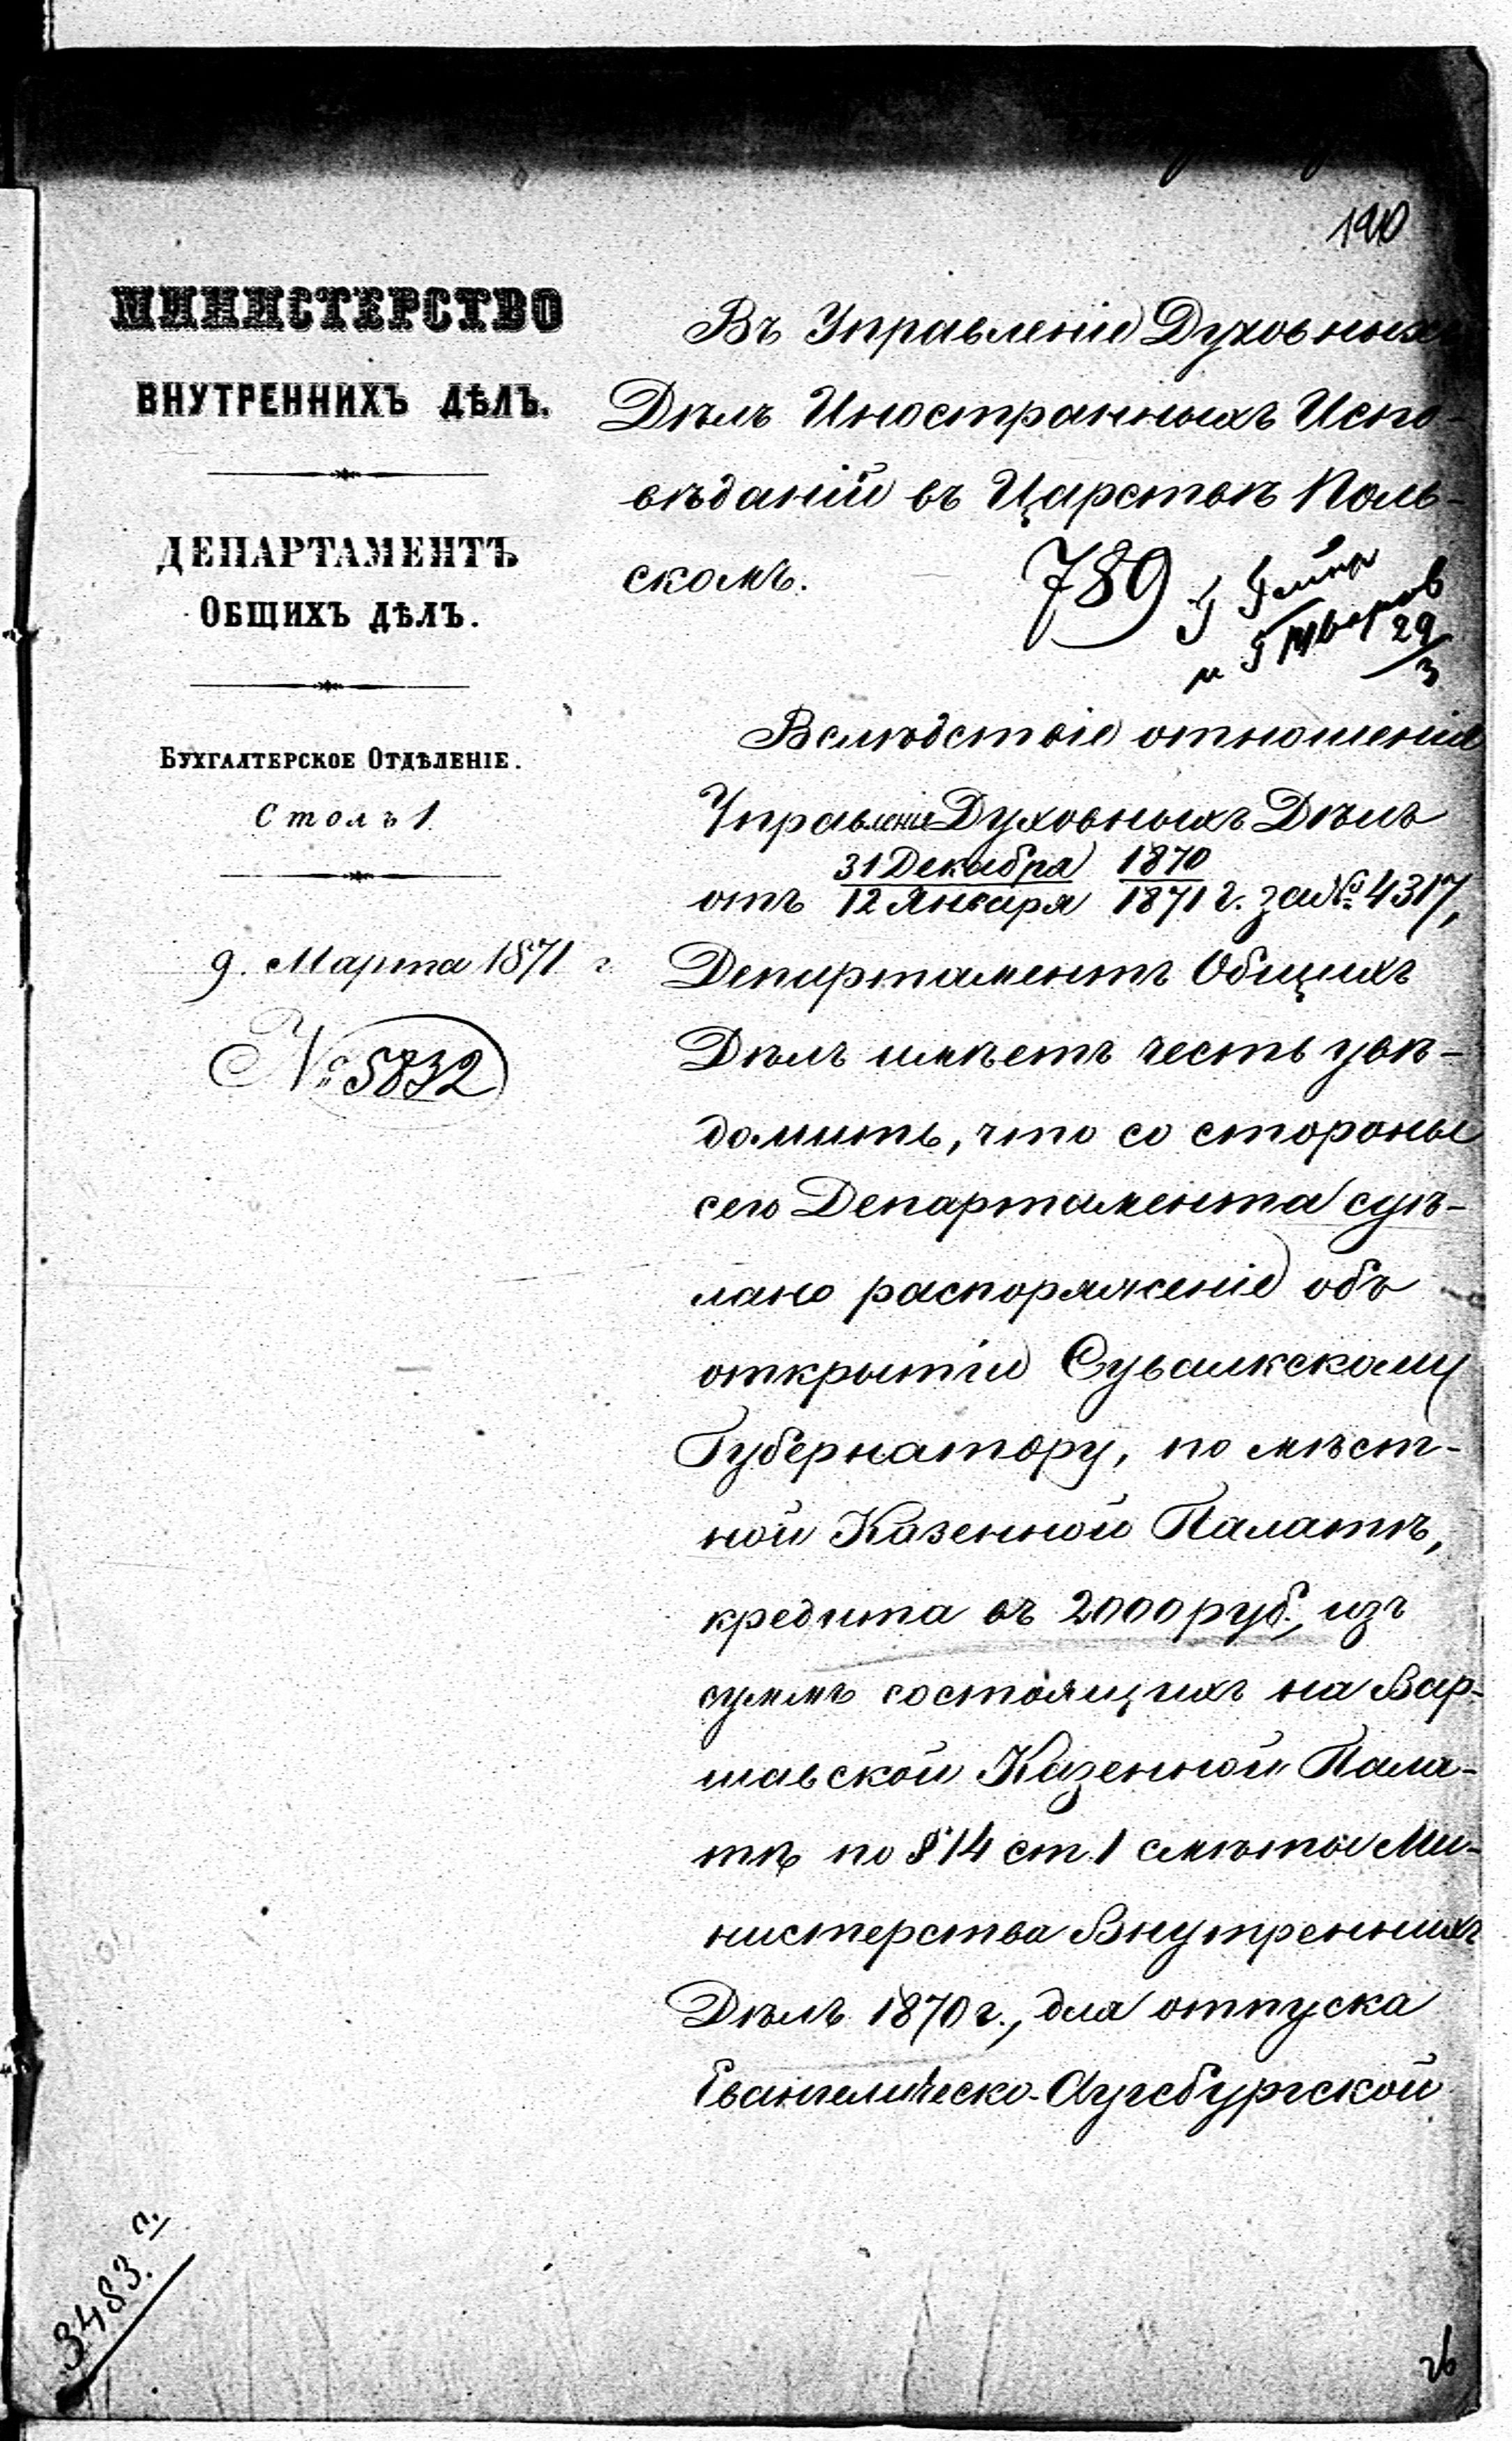 190
МИНИСТЕРСТВО
ВНУТРЕННИХЪ ДѢЛЪ.
ДЕПАРТАМЕНТЪ
ОБЩИХЪ ДѢЛЪ.
БУХГАЛТЕРСКОЕ ОТДѢЛЕНІЕ.
Столъ 1.
9. Марта 1871 г.
№ 5832
Въ Управленіе Духовныхъ
Дѣлъ Иностранныхъ Испо-
вѣданій въ Царствѣ Поль-
скомъ.
789
29/3
Вслѣдствіе отношенія
Управленія Духовныхъ Дѣлъ
отъ 31 Декабря/12 Января 1870/1871 г. за № 4317,
Департаментъ Общихъ
Дѣлъ имѣетъ честь увѣ-
домить, что со стороны
сего Департамента сдѣ-
лано распоряженіе объ
открытіи Сувалкскому
Губернатору, по мѣст-
ной Казенной Палатѣ,
кредита въ 2000 руб., изъ
суммъ состоящихъ на Вар-
шавской Казенной Пала-
тѣ по § 14 ст. 1 смѣты Ми-
нистерства Внутреннихъ
Дѣлъ 1870 г., для отпуска
Евангелическо-Аугсбургской
3483.